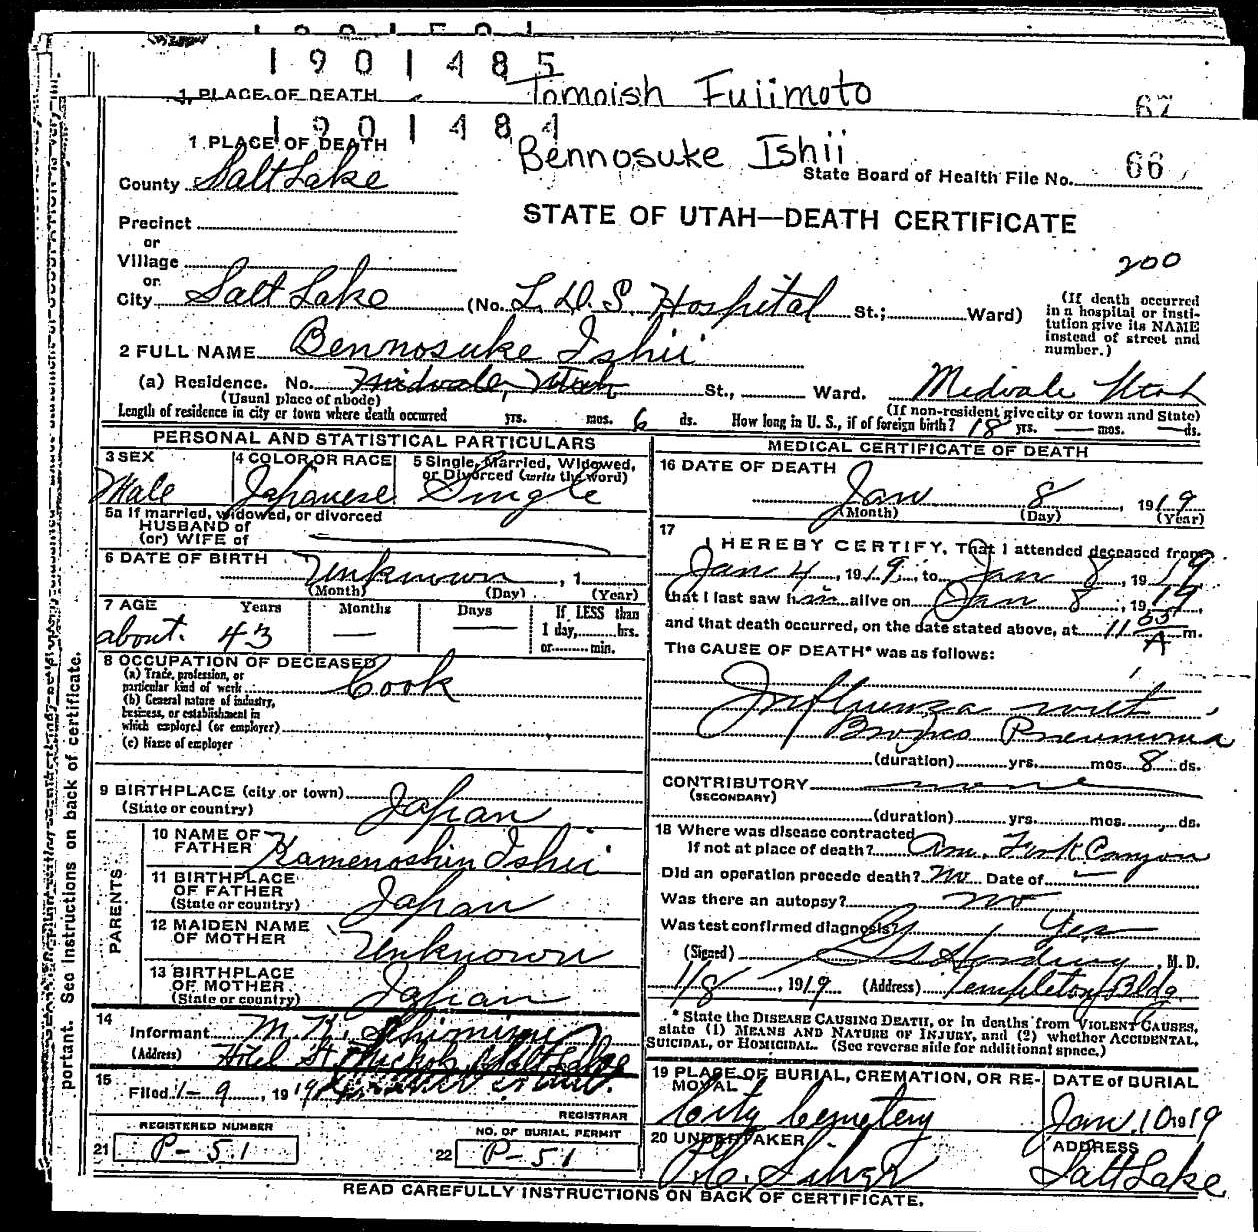 1901485
1. PLACE OF DEATH Tomoish Fujimoto 67
1901484
1 PLACE OF DEATH Bennosuke Ishii
County Salt Lake State Board of Health File No. 66
Precinct STATE OF UTAH—DEATH CERTIFICATE
or
Village 200
or
City Salt Lake (No. L.D.S Hospital St.; Ward) (If death occurred in a hospital or insti-
tution give its NAME
instead of street and
number.)
2 FULL NAME Bennosuke Ishii
(a) Residence. No. Midvale, Utah St., Ward. Medvale Utah
(Usual place of abode) (If non-resident give city or town and State)
Length of residence in city or town where death occurred yrs. mos. 6 ds. How long in U. S., if of foreign birth? 18 yrs. — mos. — ds.
PERSONAL AND STATISTICAL PARTICULARS
3 SEX 4 COLOR OR RACE 5 Single, Married, Widowed,
or Divorced (write the word)
Male Japanese Single
5a If married, widowed, or divorced
HUSBAND of
(or) WIFE of
6 DATE OF BIRTH Unknown , 1
(Month) (Day) (Year)
7 AGE Years Months Days If LESS than
1 day, hrs.
or min.
about. 43 — —
8 OCCUPATION OF DECEASED
(a) Trade, profession, or
particular kind of work Cook
(b) General nature of industry,
business, or establishment in
which employed (or employer)
(c) Name of employer
9 BIRTHPLACE (city or town)
(State or country) Japan
PARENTS
10 NAME OF
FATHER Kamenoshin Ishii
11 BIRTHPLACE
OF FATHER
(State or country) Japan
12 MAIDEN NAME
OF MOTHER Unknown
13 BIRTHPLACE
OF MOTHER
(State or country) Japan
14
Informant M. K.
(Address)
15
Filed 1-9, 1919
REGISTRAR
REGISTERED NUMBER NO. OF BURIAL PERMIT
21 P-51 22 P-51
MEDICAL CERTIFICATE OF DEATH
16 DATE OF DEATH
Jan 8, 1919
(Month) (Day) (Year)
17
I HEREBY CERTIFY, That I attended deceased from
Jan 4, 1919, to Jan 8, 1919
that I last saw him alive on Jan 8, 1919
and that death occurred, on the date stated above, at 11 55 A m.
The CAUSE OF DEATH* was as follows:
Influenza with
Bronco Pneumonia
(duration) yrs. mos. 8 ds.
CONTRIBUTORY none
(SECONDARY)
(duration) yrs. mos. ds.
18 Where was disease contracted
If not at place of death? Am. Fork Canyon
Did an operation precede death? No Date of —
Was there an autopsy? no
Was test confirmed diagnosis? Yes
(Signed) , M. D.
1/8, 1919 (Address) Templeton Bldg.
* State the DISEASE CAUSING DEATH, or in deaths from VIOLENT CAUSES,
state (1) MEANS AND NATURE OF INJURY, and (2) whether ACCIDENTAL,
SUICIDAL, or HOMICIDAL. (See reverse side for additional space.)
19 PLACE OF BURIAL, CREMATION, OR RE-
MOVAL DATE of BURIAL
City Cemetery Jan 10 1919
20 UNDERTAKER ADDRESS
Salt Lake
READ CAREFULLY INSTRUCTIONS ON BACK OF CERTIFICATE.
portant. See instructions on back of certificate.